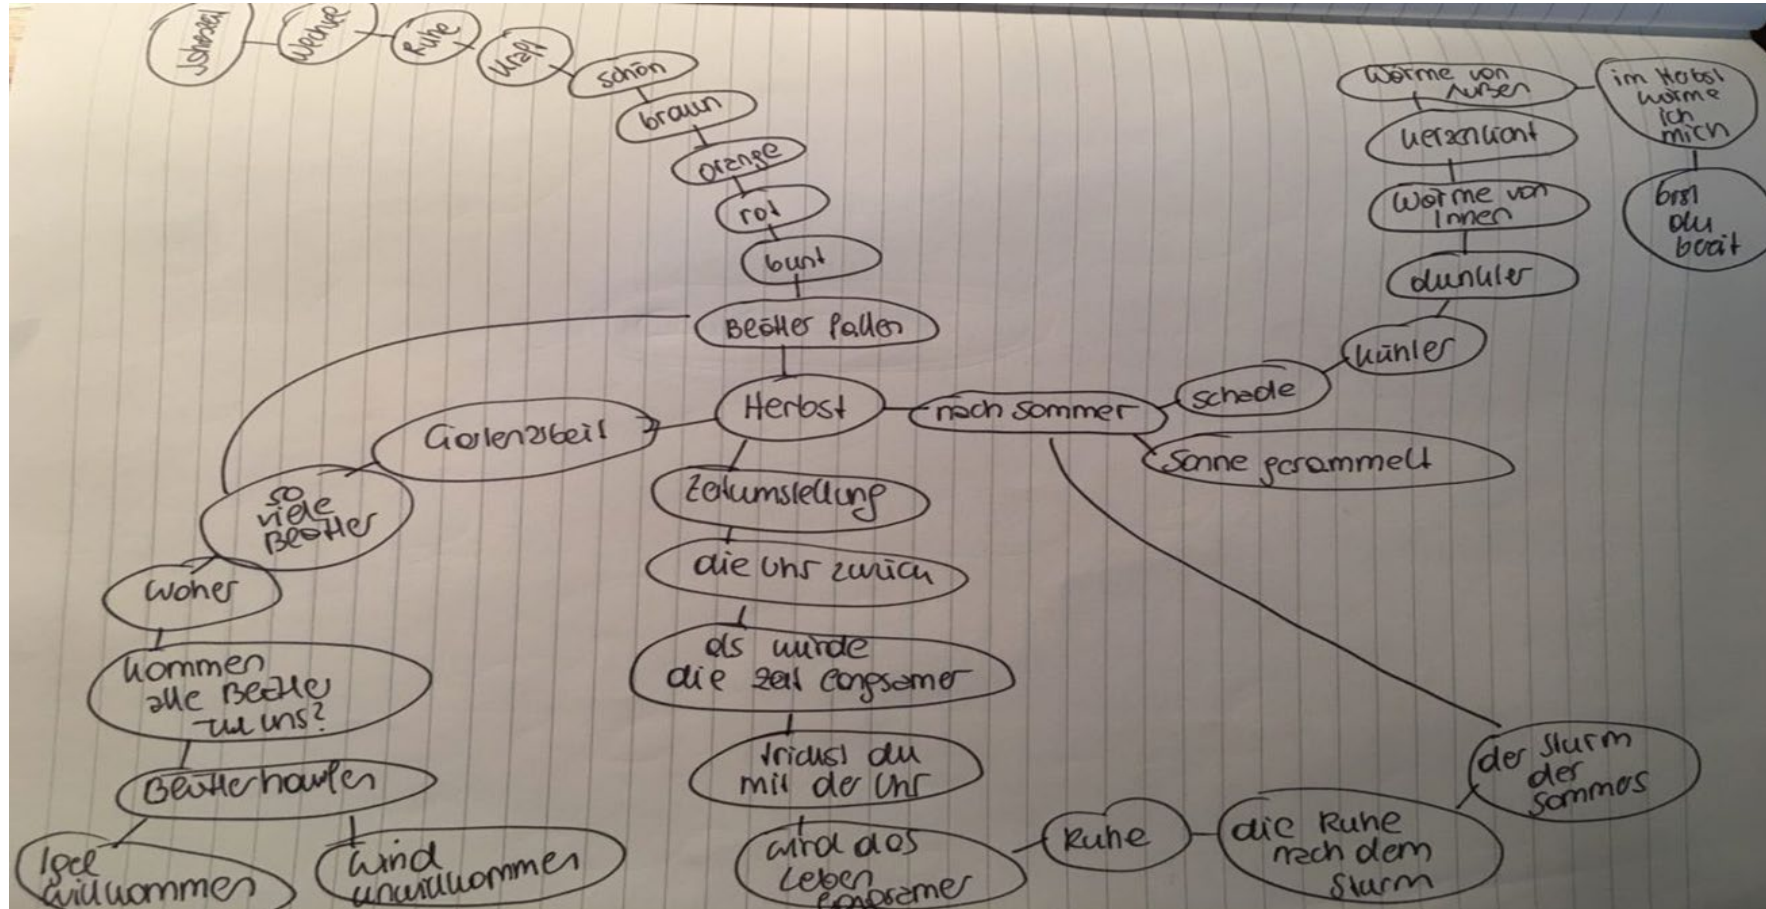 Jahreszeit
Wechsel
Ruhe
Kraft
schön
braun
orange
rot
bunt
Blätter fallen
Herbst
Gartenarbeit
so
viele
Blätter
woher
kommen
alle Blätter
zu uns?
Blätterhaufen
Igel
willkommen
Wind
unwillkommen
Zeitumstellung
die Uhr zurück
als würde
die Zeit langsamer
trickst du
mit der Uhr
wird das
Leben
langsamer
Ruhe
die Ruhe
nach dem
Sturm
der Sturm
des
Sommers
nach Sommer
schade
Sonne gesammelt
kühler
dunkler
Wärme von
Innen
Kerzenlicht
Wärme von
Außen
im Herbst
wärme
ich
mich
bist
du
bereit